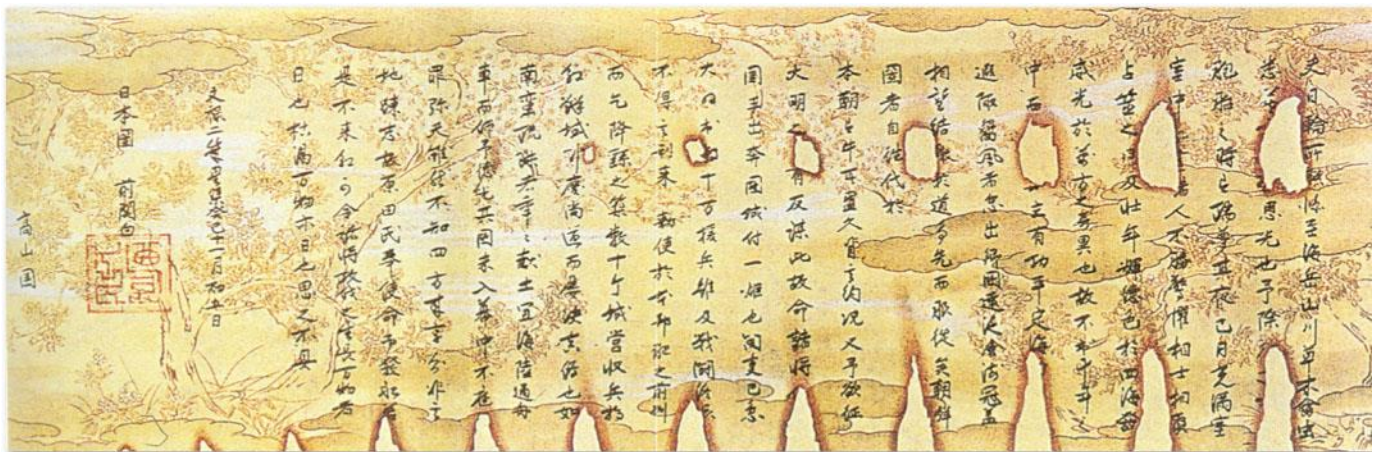 夫日輪所照臨至海岳山川草木禽虫
悉莫恩光也予際
胞胎之時有瑞夢其夜已日光満室
室中如昼諸人不勝驚懼相士相聚
占筮之曰及壮年輝徳色於四海發
威光於萬方之奇異也故不出十年之
中而立有功平定海
遐陬嚮風者忽出郷國遠泛滄海冠盖
相望結轍於道争先而服從矣朝鮮
國者自往代於
本朝有牛耳盟久背其約況又予欲征
大明之有反謀此故命諸将
國王出奔國城付一炬也聞事已急
大明出数十万援兵雖及戰鬪終依
不得其利来 勅使於本邦肥之前州
而乞降繇之築數十ケ城營収兵於
朝鮮域中慶尚道而屡決真偽也如
南蛮琉球者年々献土宜海陸通舟
車而仰予徳光其國未入幕中不庭
罪弥天雖然不知四方来享分非其
地疎志故原田氏奉使命而發船若
是不来朝可令諸将攻伐之生長万物者
日也枯渇万物亦日也思之不具
文禄二歳星集癸巳十一月初五日
日本國 前関白
高山国